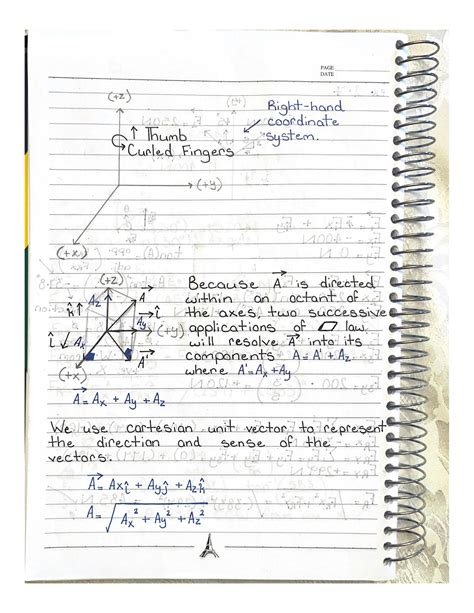 PAGE
DATE
(+z)
Right-hand
coordinate
system.
↑ Thumb
Curled Fingers
(+y)
(+x)
(+z)
Az
A
Ay
(+y)
Ax
A'
(+x)
A = Ax + Ay + Az
Because A is directed
within an octant of
the axes, two successive
applications of ▱ law
will resolve A into its
components A = A' + Az
where A' = Ax + Ay
We use cartesian unit vector to represent
the direction and sense of the
vectors.
A = Axî + Ayĵ + Azk̂
A = √(Ax² + Ay² + Az²)